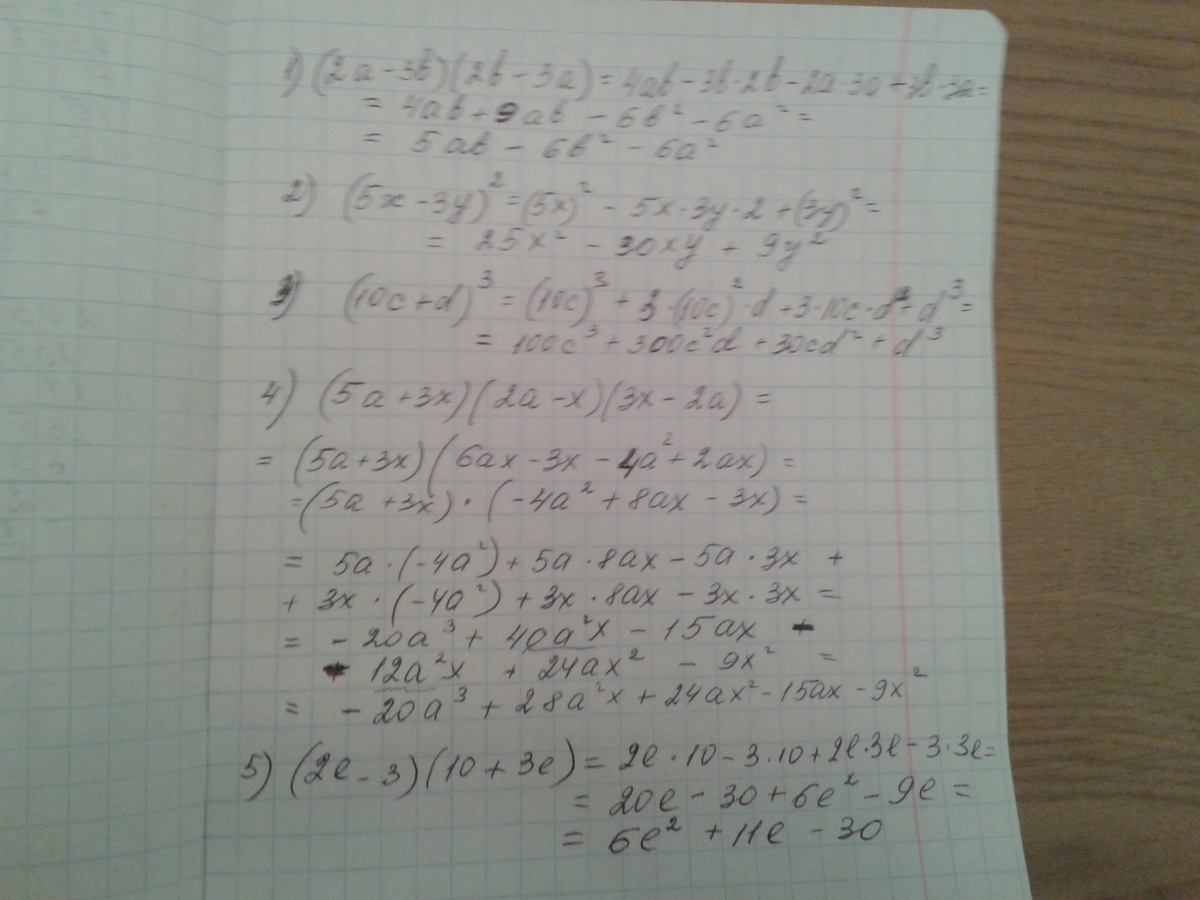 1) (2a - 3b)(2b - 3a) = 4ab - 3b·2b - 2a·3a + 3b·3a =
= 4ab + 9ab - 6b² - 6a² =
= 5ab - 6b² - 6a²
2) (5x - 3y)² = (5x)² - 5x·3y·2 + (3y)² =
= 25x² - 30xy + 9y²
3) (10c + d)³ = (10c)³ + 3·(10c)²·d + 3·10c·d² + d³ =
= 100c³ + 300c²d + 30cd² + d³
4) (5a + 3x)(2a - x)(3x - 2a) =
= (5a + 3x)(6ax - 3x - 4a² + 2ax) =
= (5a + 3x)·(-4a² + 8ax - 3x) =
= 5a·(-4a²) + 5a·8ax - 5a·3x +
+ 3x·(-4a²) + 3x·8ax - 3x·3x =
= -20a³ + 40a²x - 15ax -
- 12a²x + 24ax² - 9x² =
= -20a³ + 28a²x + 24ax² - 15ax - 9x²
5) (2e - 3)(10 + 3e) = 2e·10 - 3·10 + 2e·3e - 3·3e =
= 20e - 30 + 6e² - 9e =
= 6e² + 11e - 30